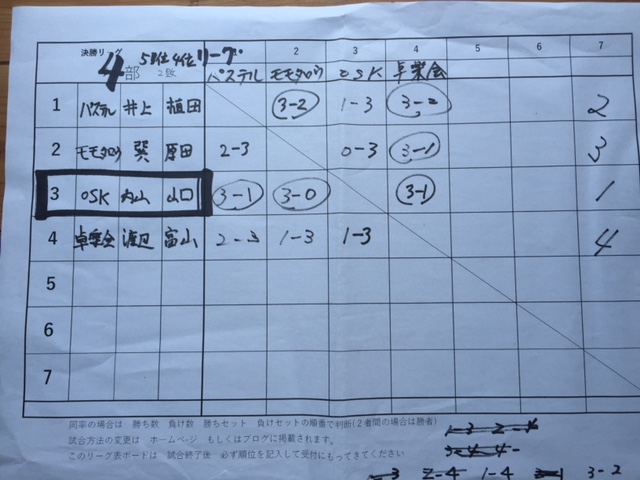 決勝リーグ
4部 2敗 位4位リーグ
2 3 4 5 6 7
パステル モモタロウ OSK 卓楽会
1 パステル 井上 植田 3-2 1-3 3-2 2
2 モモタロウ 葵 原田 2-3 0-3 3-1 3
3 OSK 内山 山口 3-1 3-0 3-1 1
4 卓楽会 渡辺 富山 2-3 1-3 1-3 4
5
6
7
同率の場合は 勝ち数 負け数 勝ちセット 負けセットの順番で判断(2者間の場合は勝者)
試合方法の変更は ホームページ もしくはブログに掲載されます。
このリーグ表ボードは 試合終了後 必ず順位を記入して受付にもってきてください
1-3 2-4
3-4
2-4 1-4 3-2